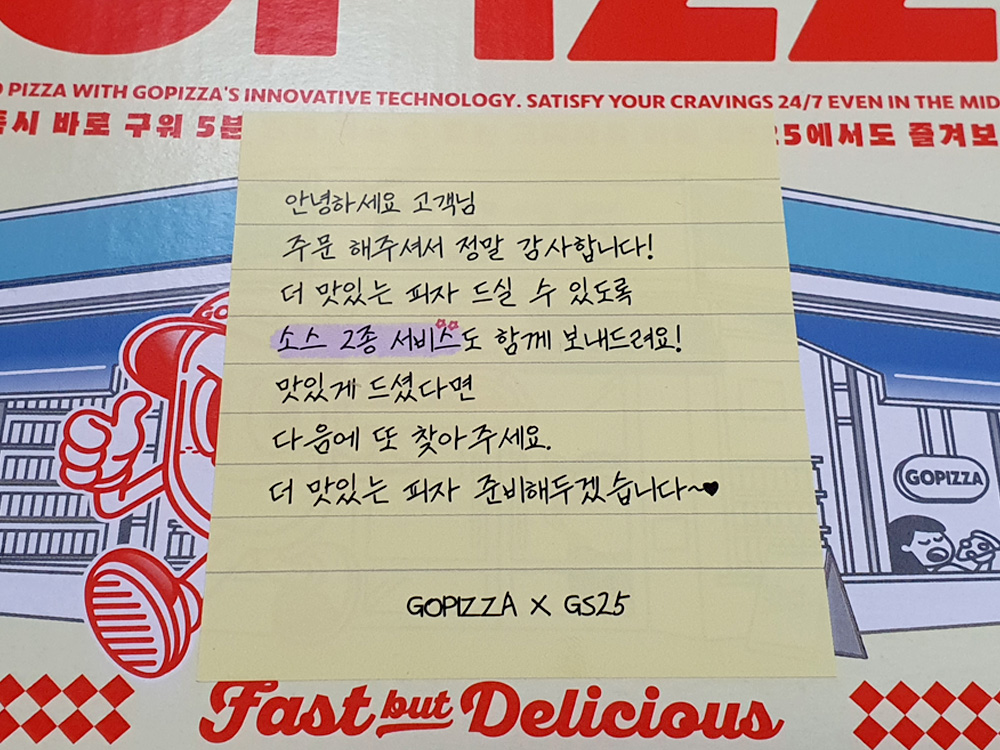 PIZZA WITH GOPIZZA'S INNOVATIVE TECHNOLOGY. SATISFY YOUR CRAVINGS 24/7 EVEN IN THE
바로 구워
25에서도
안녕하세요 고객님
주문 해주셔서 정말 감사합니다!
더 맛있는 피자 드실 수 있도록
소스 2종 서비스도 함께 보내드려요!
맛있게 드셨다면
다음에 또 찾아주세요.
더 맛있는 피자 준비해두겠습니다~♥
GOPIZZA X GS25
GOPIZZA
Fast but Delicious